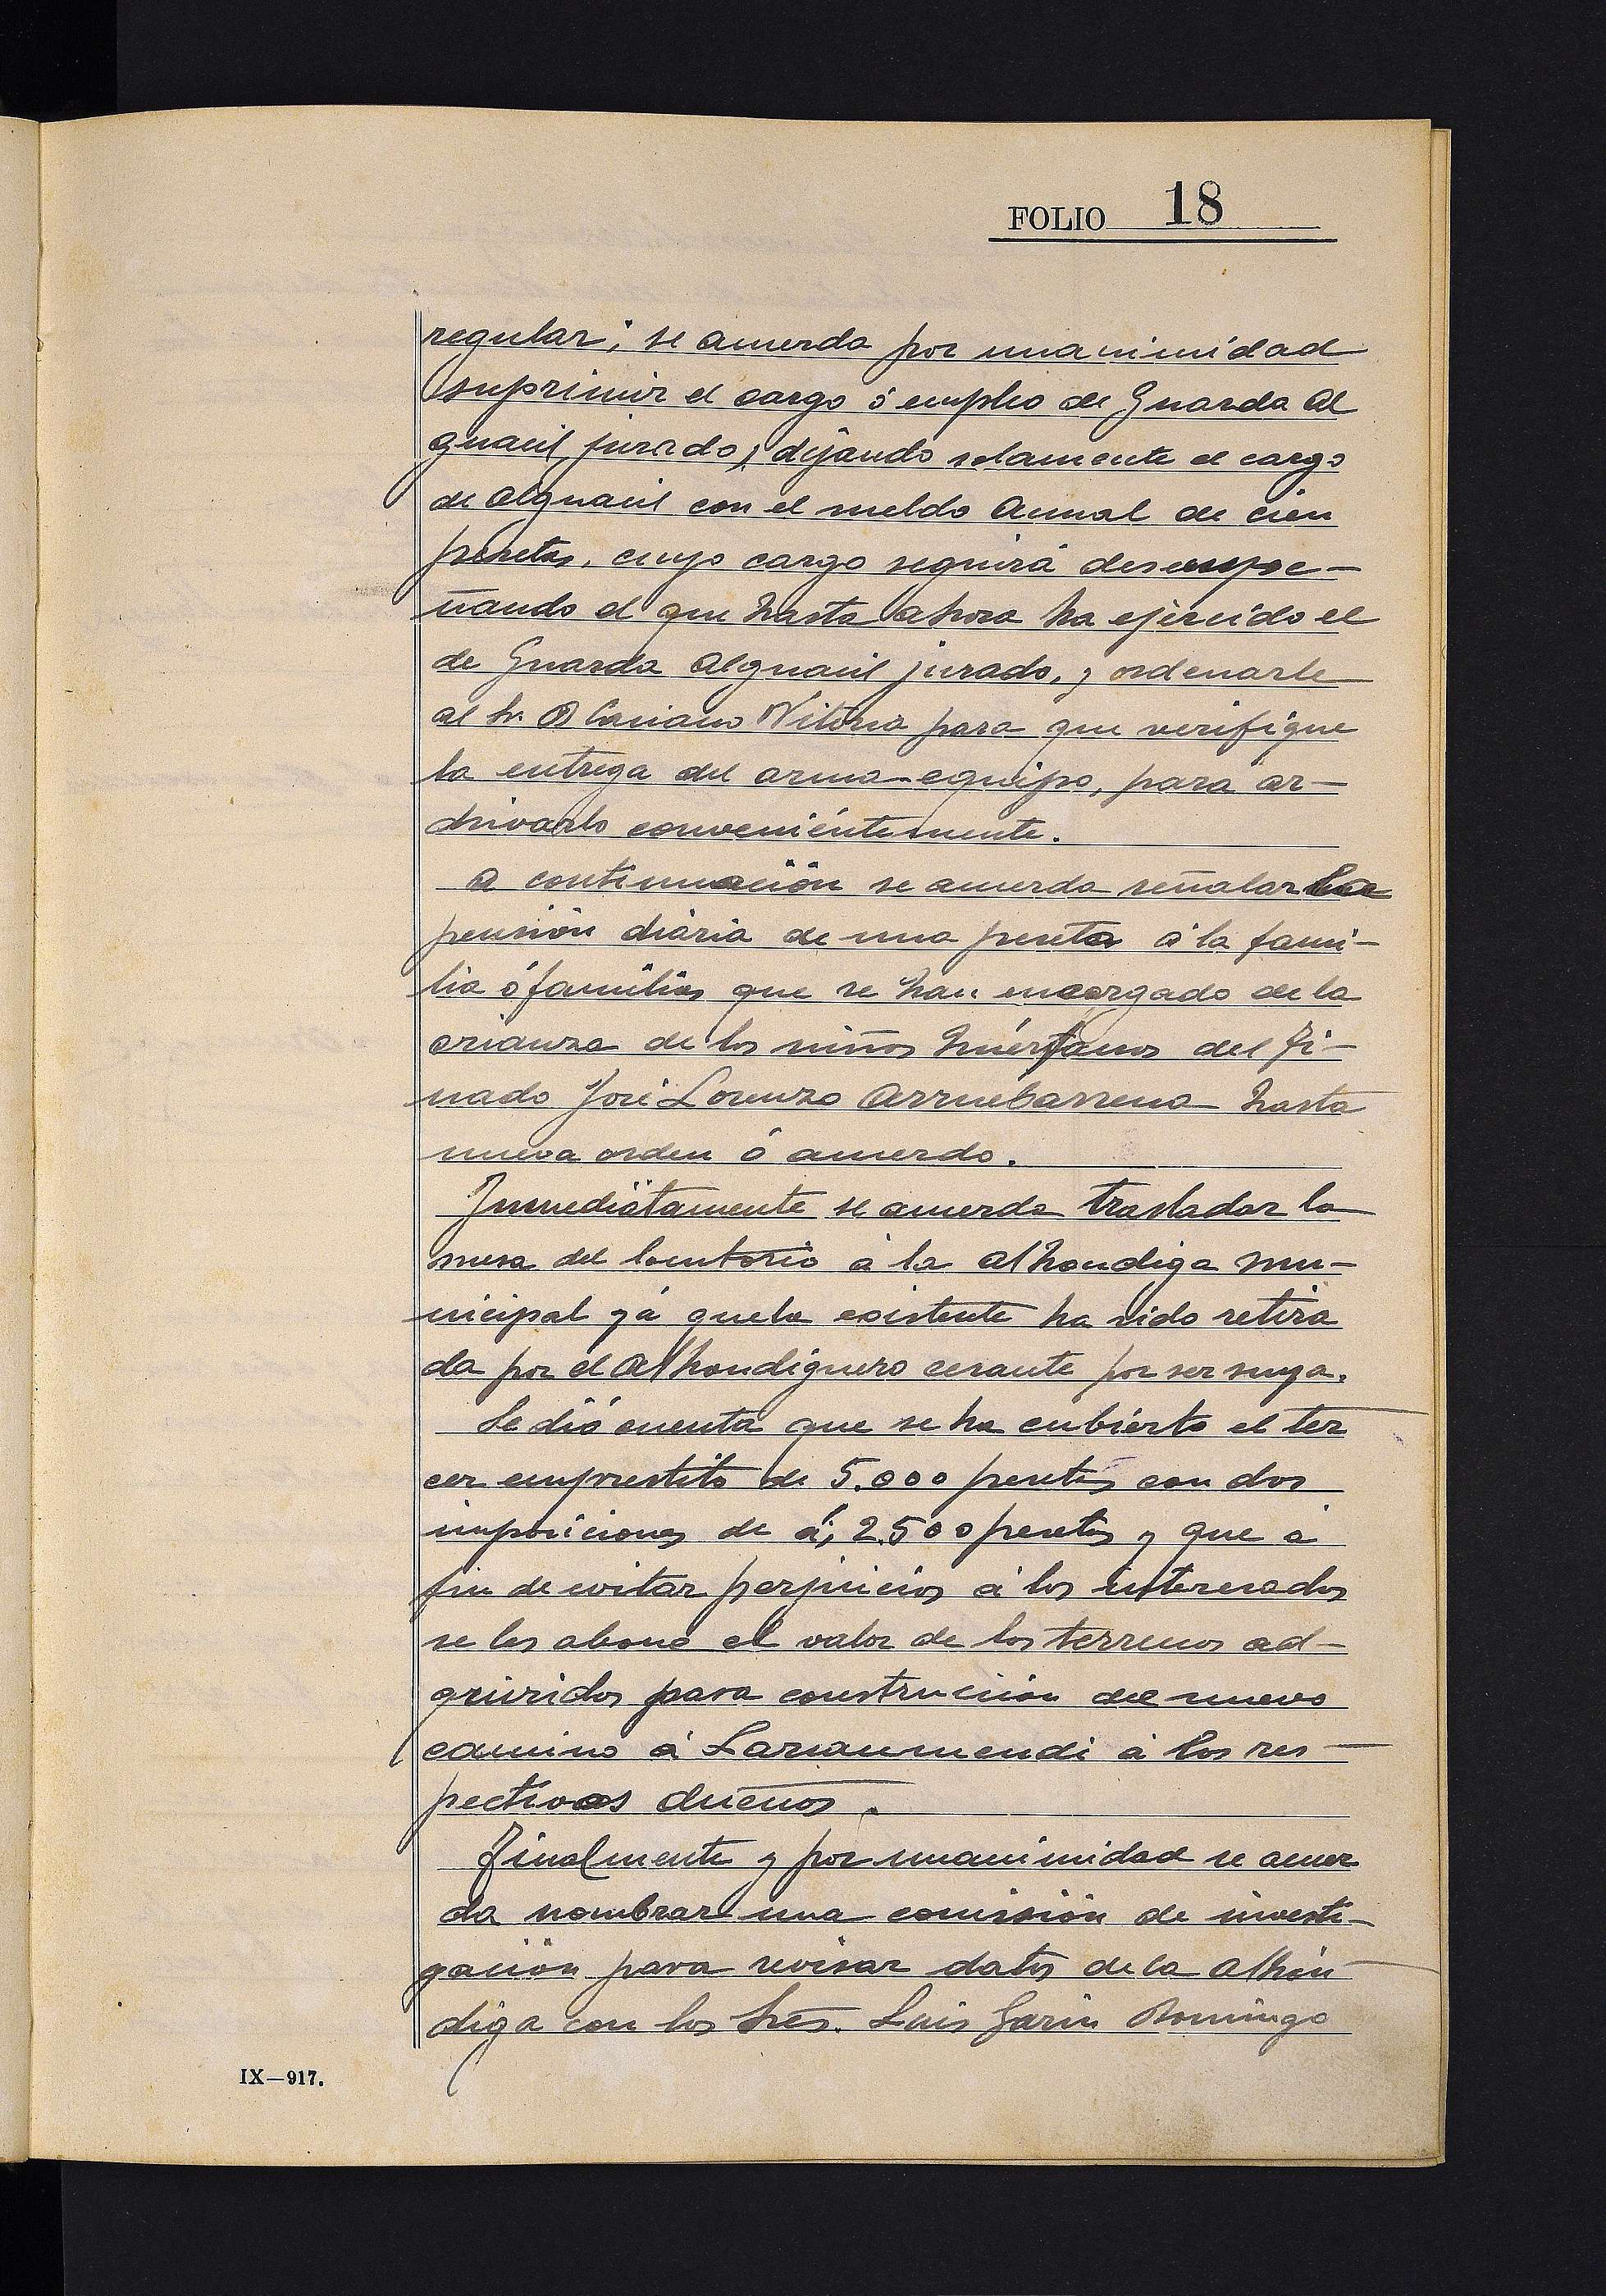 FOLIO 18
regular; se acuerda por unanimidad
suprimir el cargo ó empleo de Guarda Al
guacil jurado, dejando solamente el cargo
de Alguacil con el sueldo anual de cien
pesetas, cuyo cargo seguirá desempe-
ñando el que hasta ahora ha ejercido el
de Guarda Alguacil jurado, y ordenarle
al Sr. Vitoria para que verifique
la entrega del arma-equipo, para ar-
chivarlo conveniéntemente.
A continuación se acuerda señalar la
pensión diária de una peseta á la fami-
lia ó familias que se han encargado de la
crianza de los niños huérfanos del fi-
nado José Lorenzo Arruebarrena hasta
nueva orden ó acuerdo.
Inmediatamente se acuerda trasladar la
mesa del locutorio á la alhondiga mu-
nicipal yá que la existente ha sido retira
da por el Alhondiguero cesante por ser suya.
Se dió cuenta que se ha cubierto el ter
cer emprestito de 5.000 pesetas con dos
imposiciones de á, 2.500 pesetas y que á
fin de evitar perjuicios á los interesados
se les abone el valor de los terrenos ad-
quiridos para construcción del nuevo
camino á Larraumendi á los res-
pectivos dueños.
Finalmente y por unanimidad se acuer
da nombrar una comisión de investi-
gación para revisar datos de la Alhón
diga con los Srés. Luis Garin Domingo
IX—917.